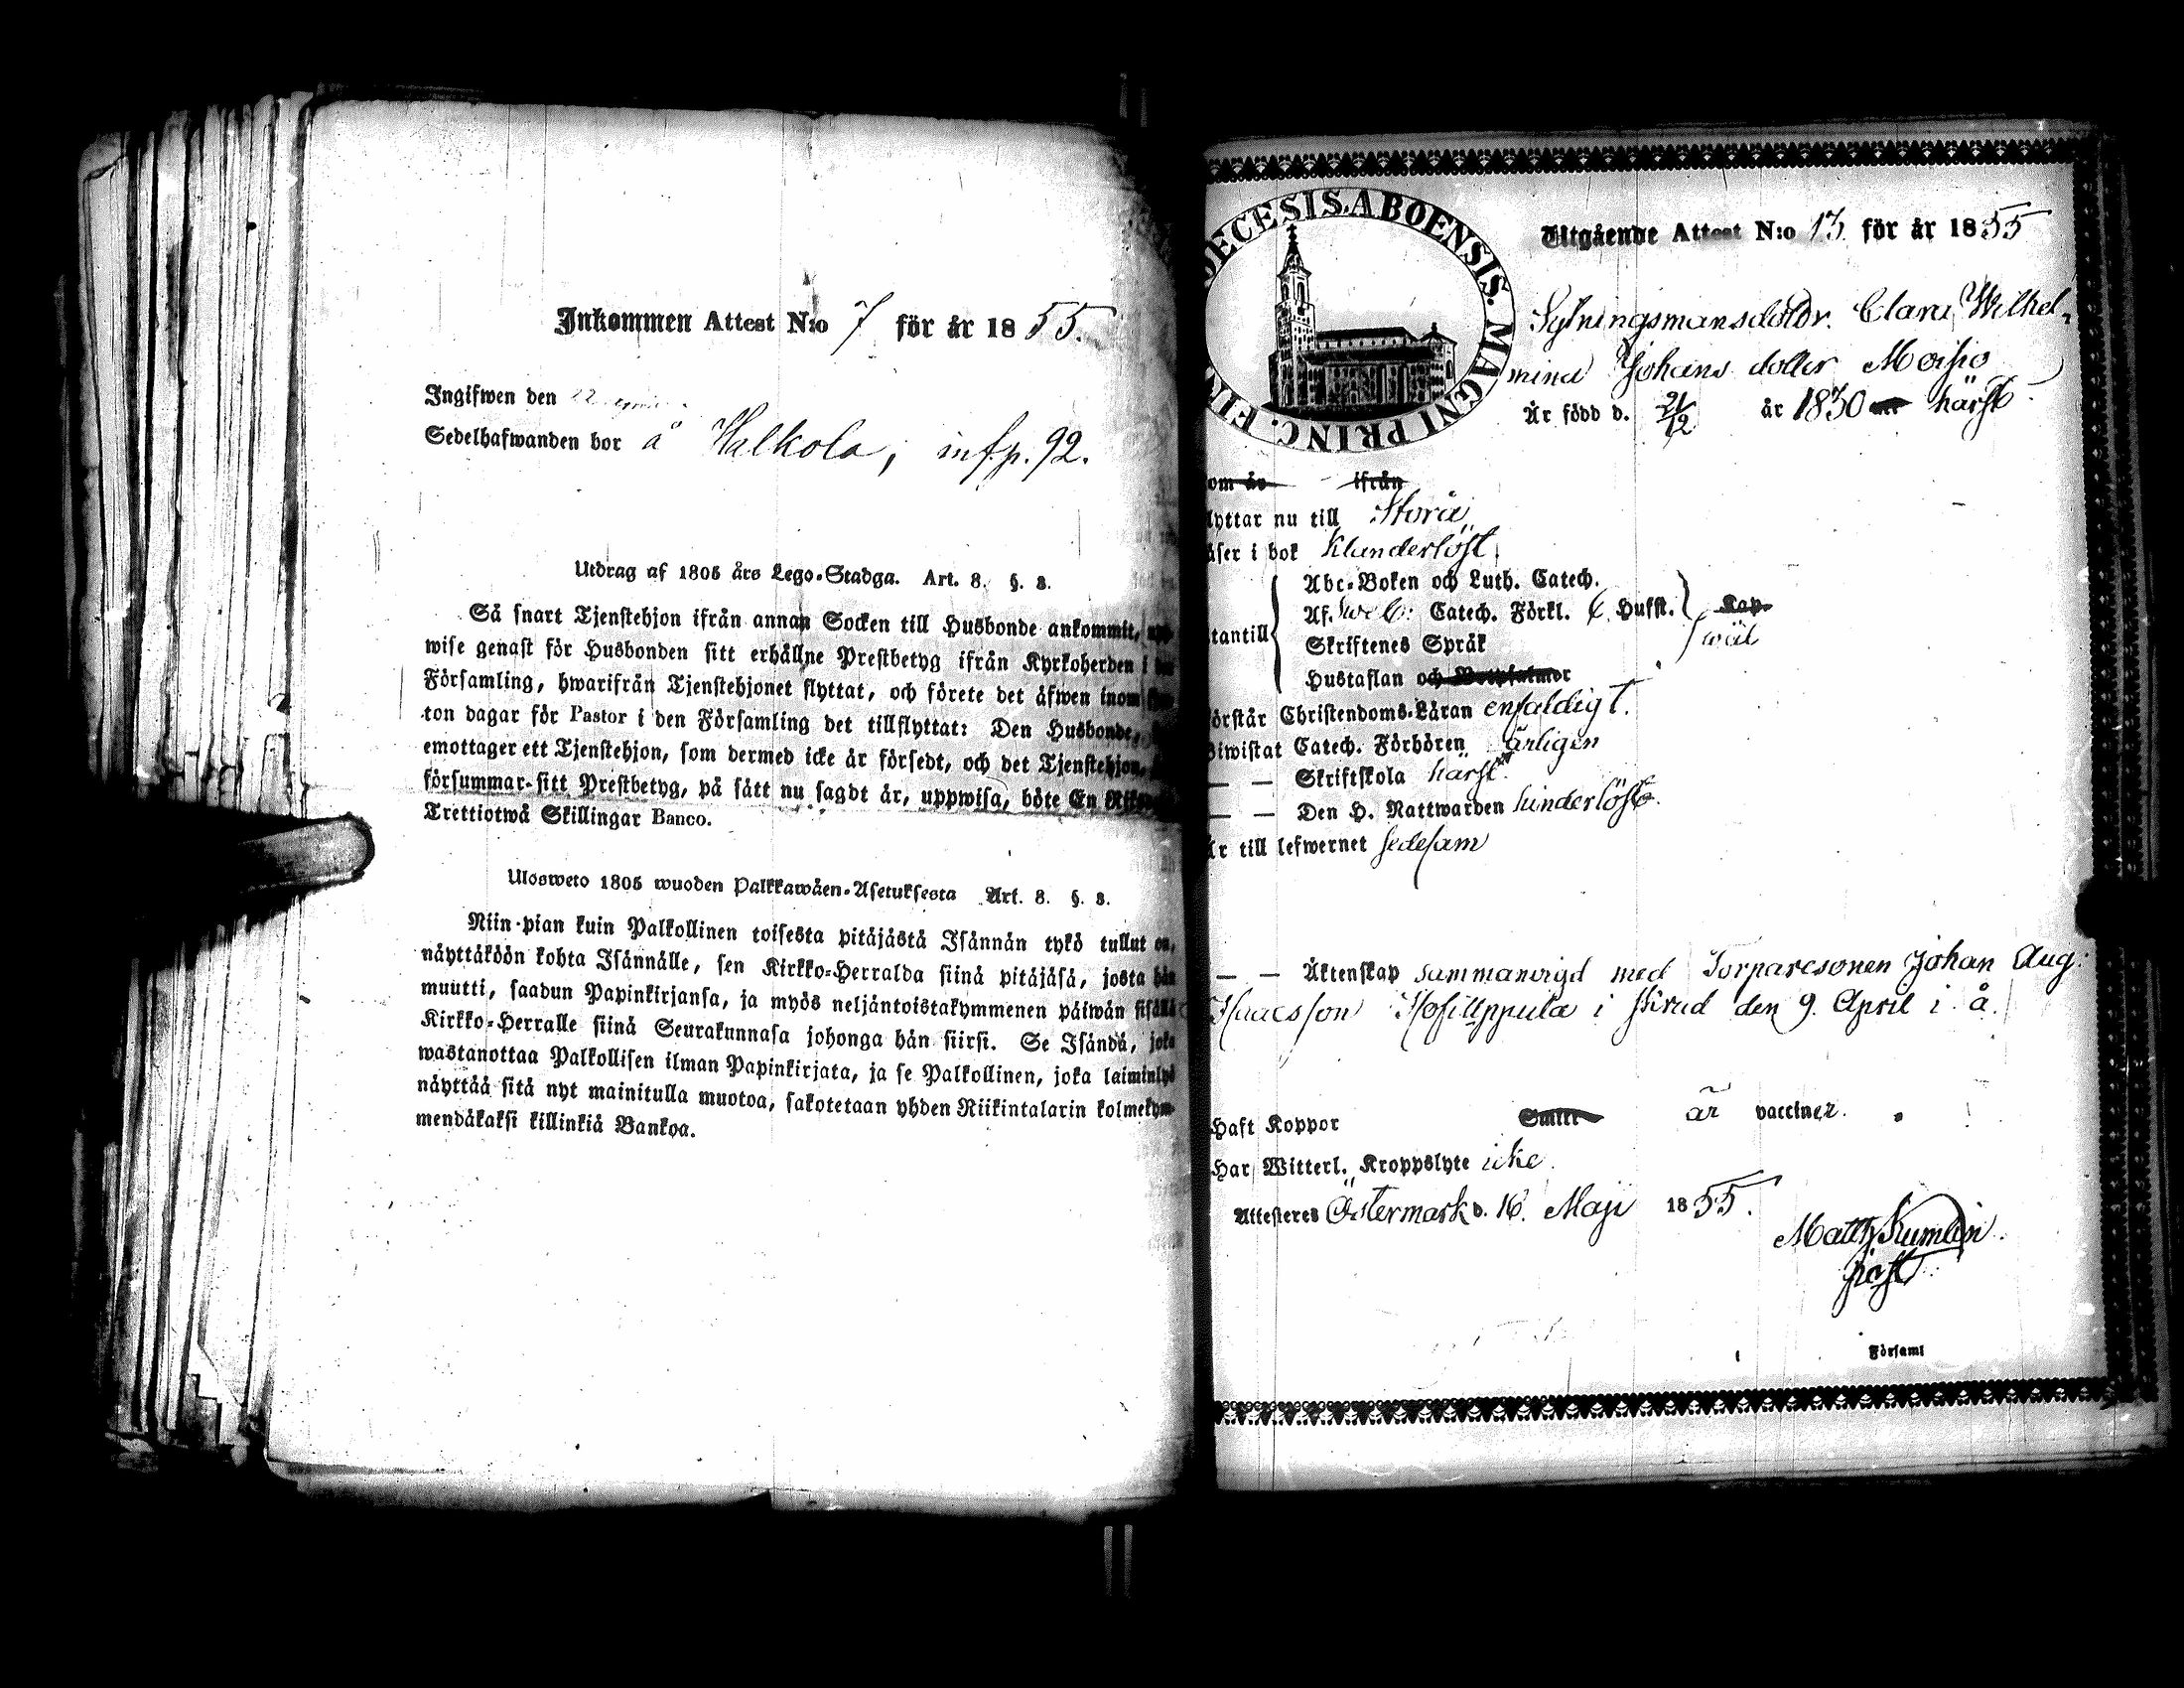 Inkommen Attest N:o 7 för år 1855.
Ingifwen den 22
Sedelhafwanden bor å Walkola, inf. p. 92.
Utdrag af 1805 års Lego-Stadga. Art. 8. §. 8.
Så snart Tjenstehjon ifrån annan Socken till Husbonde ankommit,
wise genast för Husbonden sitt erhållne Prestbetyg ifrån Kyrkoherden i
Församling, hwarifrån Tjenstehjonet flyttat, och förete det äfwen inom
ton dagar för Pastor i den Församling det tillflyttat: Den Husbonde,
emottager ett Tjenstehjon, som dermed icke är försedt, och det Tjenstehjon,
försummar sitt Prestbetyg, på sätt nu sagdt är, uppwisa, böte En
Trettiotwå Skillingar Banco.
Ulosweto 1805 wuoden Palkkawäen-Asetuksesta Art. 8. §. 8.
Niin pian kuin Palkollinen toisesta pitäjästä Isännän tykö tullut on,
näyttäköön kohta Isännälle, sen Kirkko-Herralda siinä pitäjäsä, josta hän
muutti, saadun Papinkirjansa, ja myös neljäntoistakymmenen päiwän sisällä
Kirkko-Herralle siinä Seurakunnasa johonga hän siirsi. Se Isändä, joka
wastanottaa Palkollisen ilman Papinkirjata, ja se Palkollinen, joka laiminlyö
näyttää sitä nyt mainitulla muotoa, sakotetaan yhden Riikintalarin kolmekym-
mendäkaksi killinkiä Bankoa.
ECESIS. ABOENSIS. MAGNI PRINC. FIN
Utgående Attest N:o 13 för år 1855
Clara Wilhel-
mina Johans dotter Moisio
Är född d. 21/12 år 1830 härst.
om är ifrån
lyttar nu till Storå
äser i bok klanderlöst
Abc-Boken och Luth. Catech.
Af Sweb: Catech. Förkl. C. Husst. Kap
tantill Skriftenes Språk wäl
Hustaflan och Botpsalmer
örstår Christendoms-Läran enfaldigt.
Biwistat Catech. Förhören årligen
— — Skriftskola härst.
— — Den H. Nattwarden hinderlöst.
Är till lefwernet sedesam
— — Äktenskap sammanvigd med Torparesonen Johan Aug:
Isaacsson i den 9. April i. å.
Haft Koppor Smitt är vaccine
Har Witterl. Kroppslyte icke
Attesteres Östermark d. 16. Maji 1855.
Matth Kumlin
past
Församl